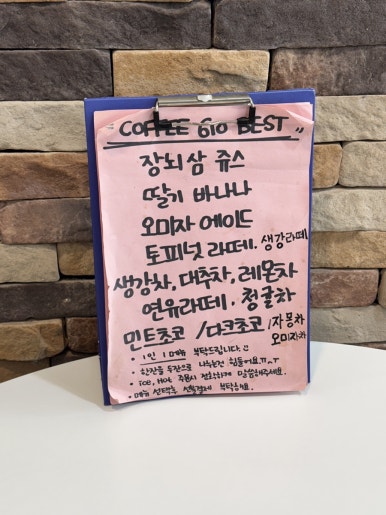 COFFEE 610 BEST"
장뇌삼 쥬스
딸기 바나나
오미자 에이드
토피넛 라떼. 생강라떼
생강차, 대추차, 레몬차
연유라떼. 청귤차
민트초코 / 다크초코 / 자몽차
오미자차
• 1인 1메뉴 부탁드립니다.
• 한잔을 두잔으로 나누는건 힘들어요.ㅠㅜ
• Ice, Hot 주문시 정확하게 말씀해주세요.
• 메뉴 선택후 선결제 부탁해요.